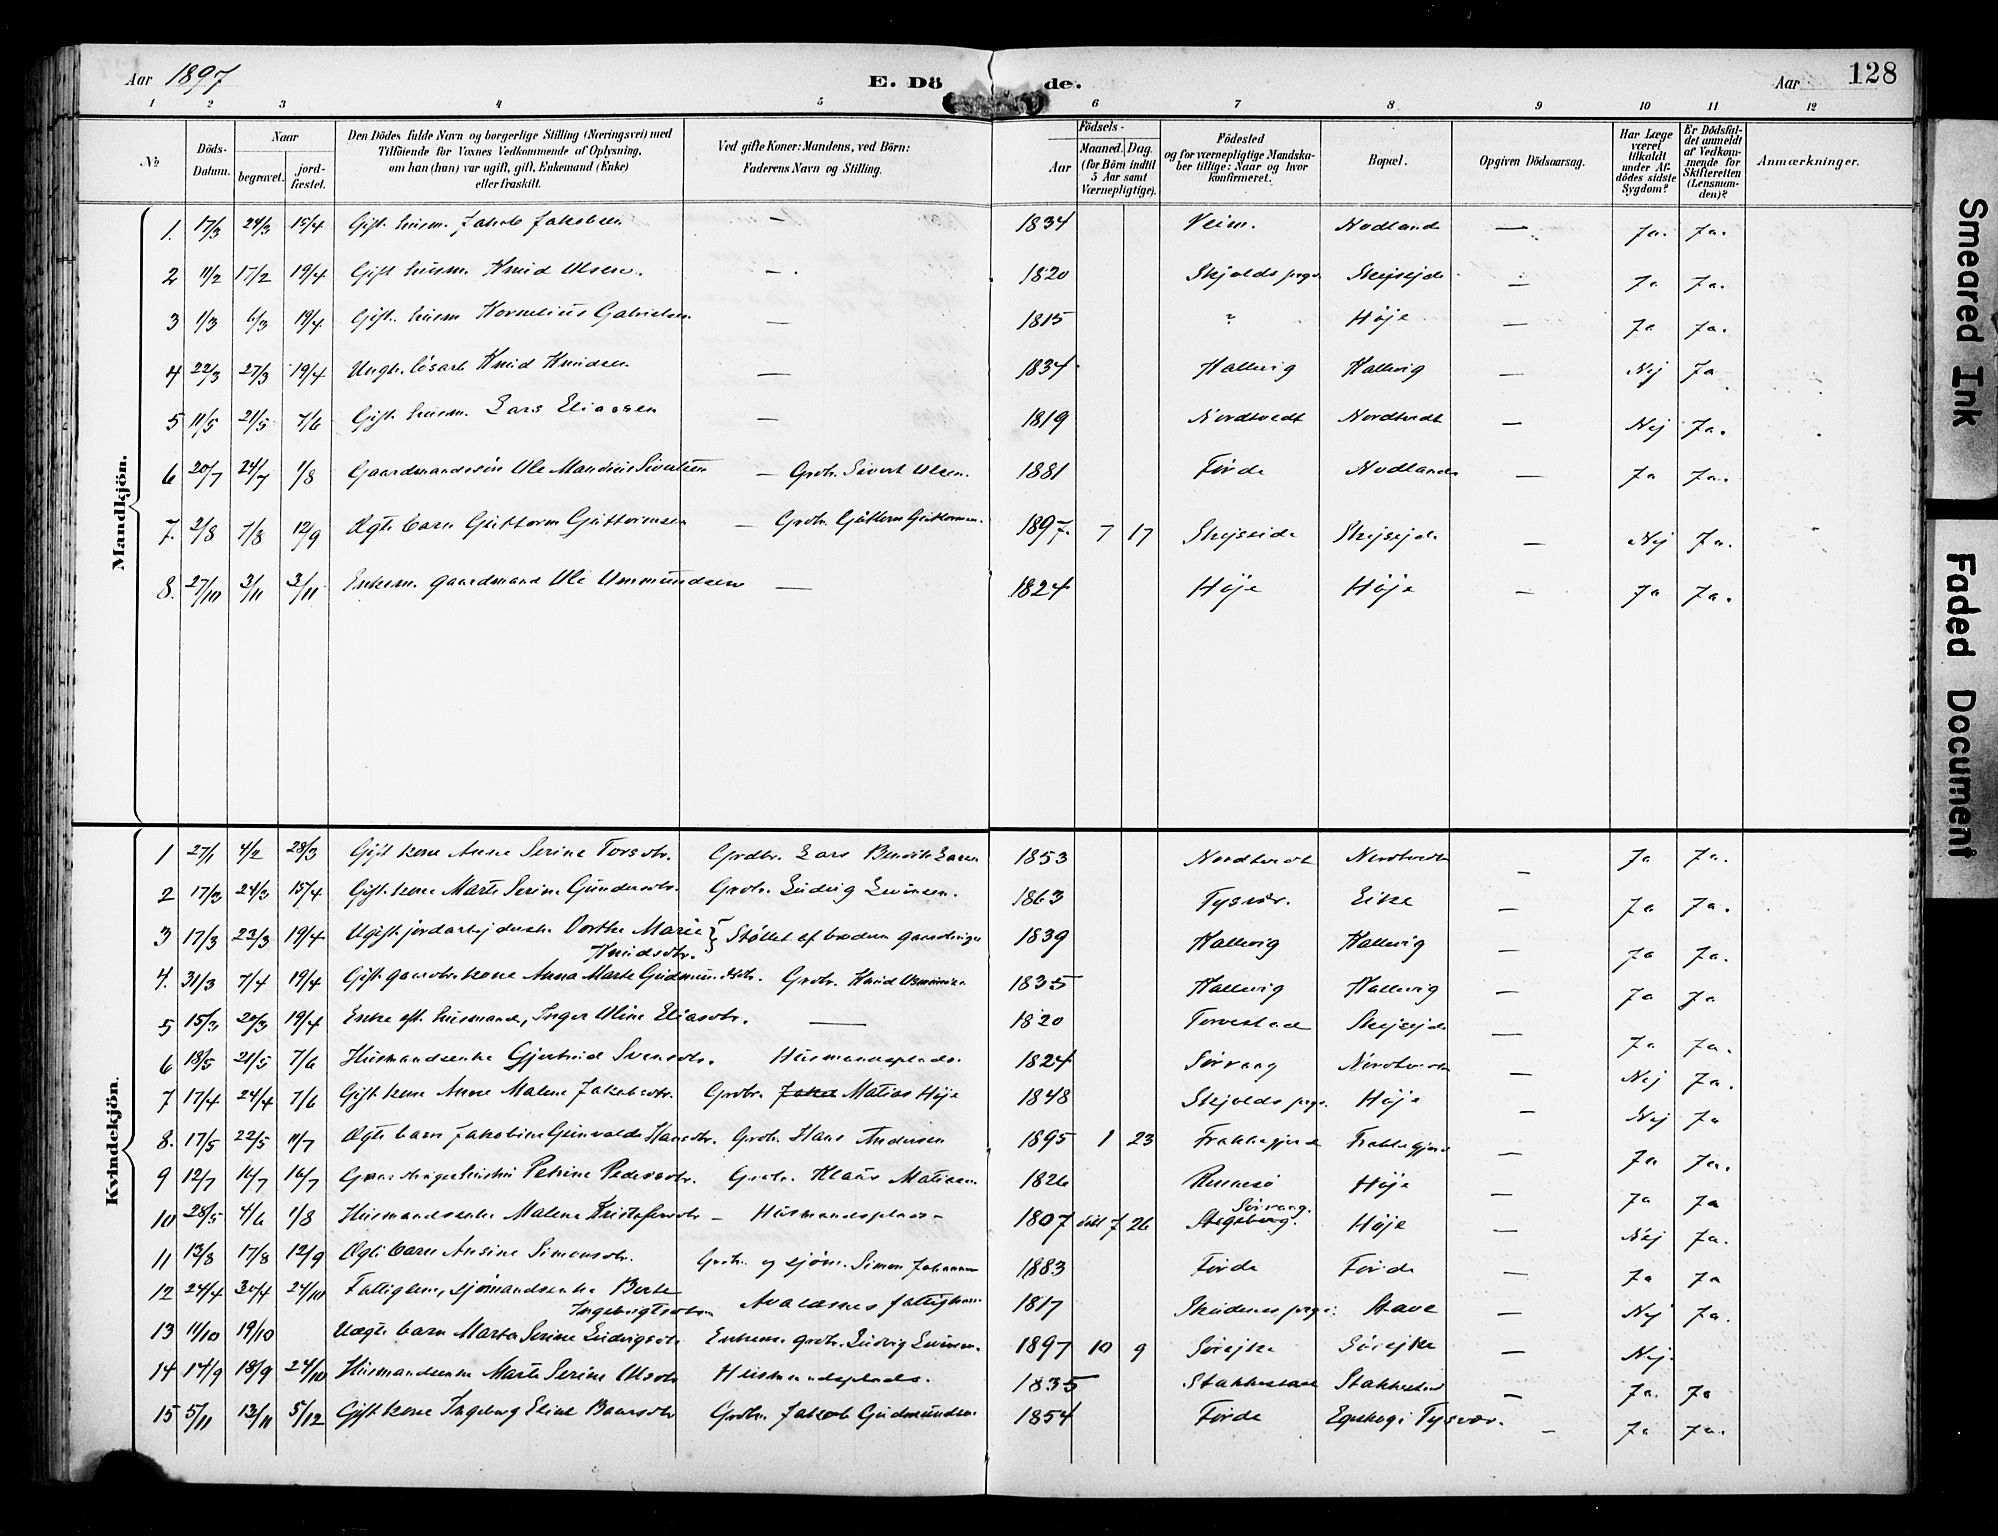 Aar 1897
E. Dö de.
Aar 128
1 2 3 4 5 6 7 8 9 10 11 12
№
Döds-Datum.
Naar
begravet.
jord-fæstet.
Den Dödes fulde Navn og borgerlige Stilling (Næringsvei) med
Tilföiende for Voxnes Vedkommende af Oplysning,
om han (hun) var ugift, gift, Enkemand (Enke)
eller fraskilt.
Ved gifte Koner: Mandens, ved Börn:
Faderens Navn og Stilling.
Födsels-
Aar
Maaned. Dag.
(for Börn indtil
5 Aar samt
Værnepligtige).
Födested
og for værnepligtige Mandska-
ber tillige: Naar og hvor
konfirmeret.
Bopæl.
Opgiven Dödsaarsag.
Har Læge
været
tilkaldt
under Af-
dödes sidste
Sygdom?
Er Dödsfal-
det anmeldt
af Vedkom-
mende for
Skifteretten
(Lensman-
den)?
Anmærkninger.
Mandkjön.
1. 17/3 24/3 15/4 Gift husm. Jakob Jakobsen — 1834 Veim. Nodland — Ja. Ja.
2 11/2 17/2 19/4 Gift husm Knud Olsen. — 1820 Skjolds prgj. Skejsejde — Ja Ja.
3 1/3 6/3 19/4 Gift. husm Kornelius Gabrielsen — 1815 ? Høje — Ja Ja.
4 22/3 27/3 19/4 Ungk. løsarb Knud Knudsen — 1834 Hallvig Hallvig — Nej Ja
5 11/5 21/5 7/6 Gift husm. Lars Eliassen — 1819 Nordtvedt Nordtvedt — Nej Ja.
6 20/7 24/7 1/8 Gaardmandssøn Ole Mandrius Sivertsen — Grdbr. Sivert Olsen. 1881 Førde Nodland Ja Ja.
7. 2/8 7/8 12/9 Ægte barn Guttorm Guttormsen — Grdbr. Guttorm Guttormsen. 1897. 7 17 Skejseide Skejsejde — Nej Ja.
8. 27/10 3/11 3/11 Enkem. gaardmand Ole Ommundsen — 1824 Høje Høje — Ja Ja.
Kvindekjön.
1 27/1 4/2 28/3 Gift kone Anne Serine Torsdtr. Grdbr. Lars Bendik Larsen 1853 Nordtvedt Nordtvedt — Ja Ja.
2 17/3 24/3 15/4 Gift kone Marte Serine Gundersdtr. Grdbr. Ludvig Levinsen. 1863 Tysvær. Eike — Ja Ja.
3 17/3 23/3 19/4 Ugift jordarbejderske Dorthe Marie } Støttet af brodern gaardbruger 1839 Hallvig Hallvig — Ja Ja.
Knudsdtr.
4. 31/3 7/4 19/4 Gift gaardbr.kone Anna Marte Gudmundsdtr. Grdbr. Knud Osmundsen 1835 Hallvig Hallvig — Ja Ja
5 15/3 20/3 19/4 Enke eft. husmand, Inger Oline Eliasdtr. — 1820 Torvestad Skejsejde — Ja Ja.
6 18/5 21/5 7/6 Husmandsenke Gjertrud Svensdtr. Husmandsplads. 1824 Sørvaag Nordtvedt Nej Ja.
7 17/4 24/4 7/6 Gift kone Anne Malene Jakobsdtr. Grdbr. Matias Høje 1848 Skjolds prgj. Høje — Nej Ja
8. 17/5 22/5 11/7 Ægte barn Jakobine Gunvalda Hansdtr. Grdbr. Hans Andersen 1895 1 23 Frakkagjerd Frakkagjerd — Ja Ja.
9 12/7 16/7 16/7 Gaardbrugerhustru Petrine Pedersdtr. Grdbr. Klaus Matisen 1826 Rennesø Høje — Ja Ja
10 28/5 4/6 1/8 Husmandsenke Malene Kristofersdtr — Husmandsplads — 1807 7 26 Sørvaag. Høje Nej Ja.
11 13/8 17/8 12/9 Ægte barn Ansine Simonsdtr. Grdbr. og sjøm. Simon Johannesen 1883 Førde Førde — Ja Ja
12 24/4 30/4 24/10 Fattiglem, sjømandsenke Berte Avaldsnes fattigkasse 1817 Skudenes prgj. Stave — Nej Ja.
Ingebrigtsdtr
13 11/10 19/10 Uægte barn Marta Serine Ludvigsdtr Enkem. grdbr. Ludvig Levinsen. 1897 10 9 Sørejke Sørejke — Nej.
14 14/9 18/9 24/10 Husmandsenke Marte Serine Olsdtr Husmandsplads. 1835 Stakkestad Stakkestad — Ja. Ja
15 5/11 13/11 5/12 Gift kone Ingeborg Eline Baarsdtr Grdbr. Jakob Gudmundsen 1854 Førde Epskog i Tysvær. — Ja Ja.
Smeared Ink
Faded Document